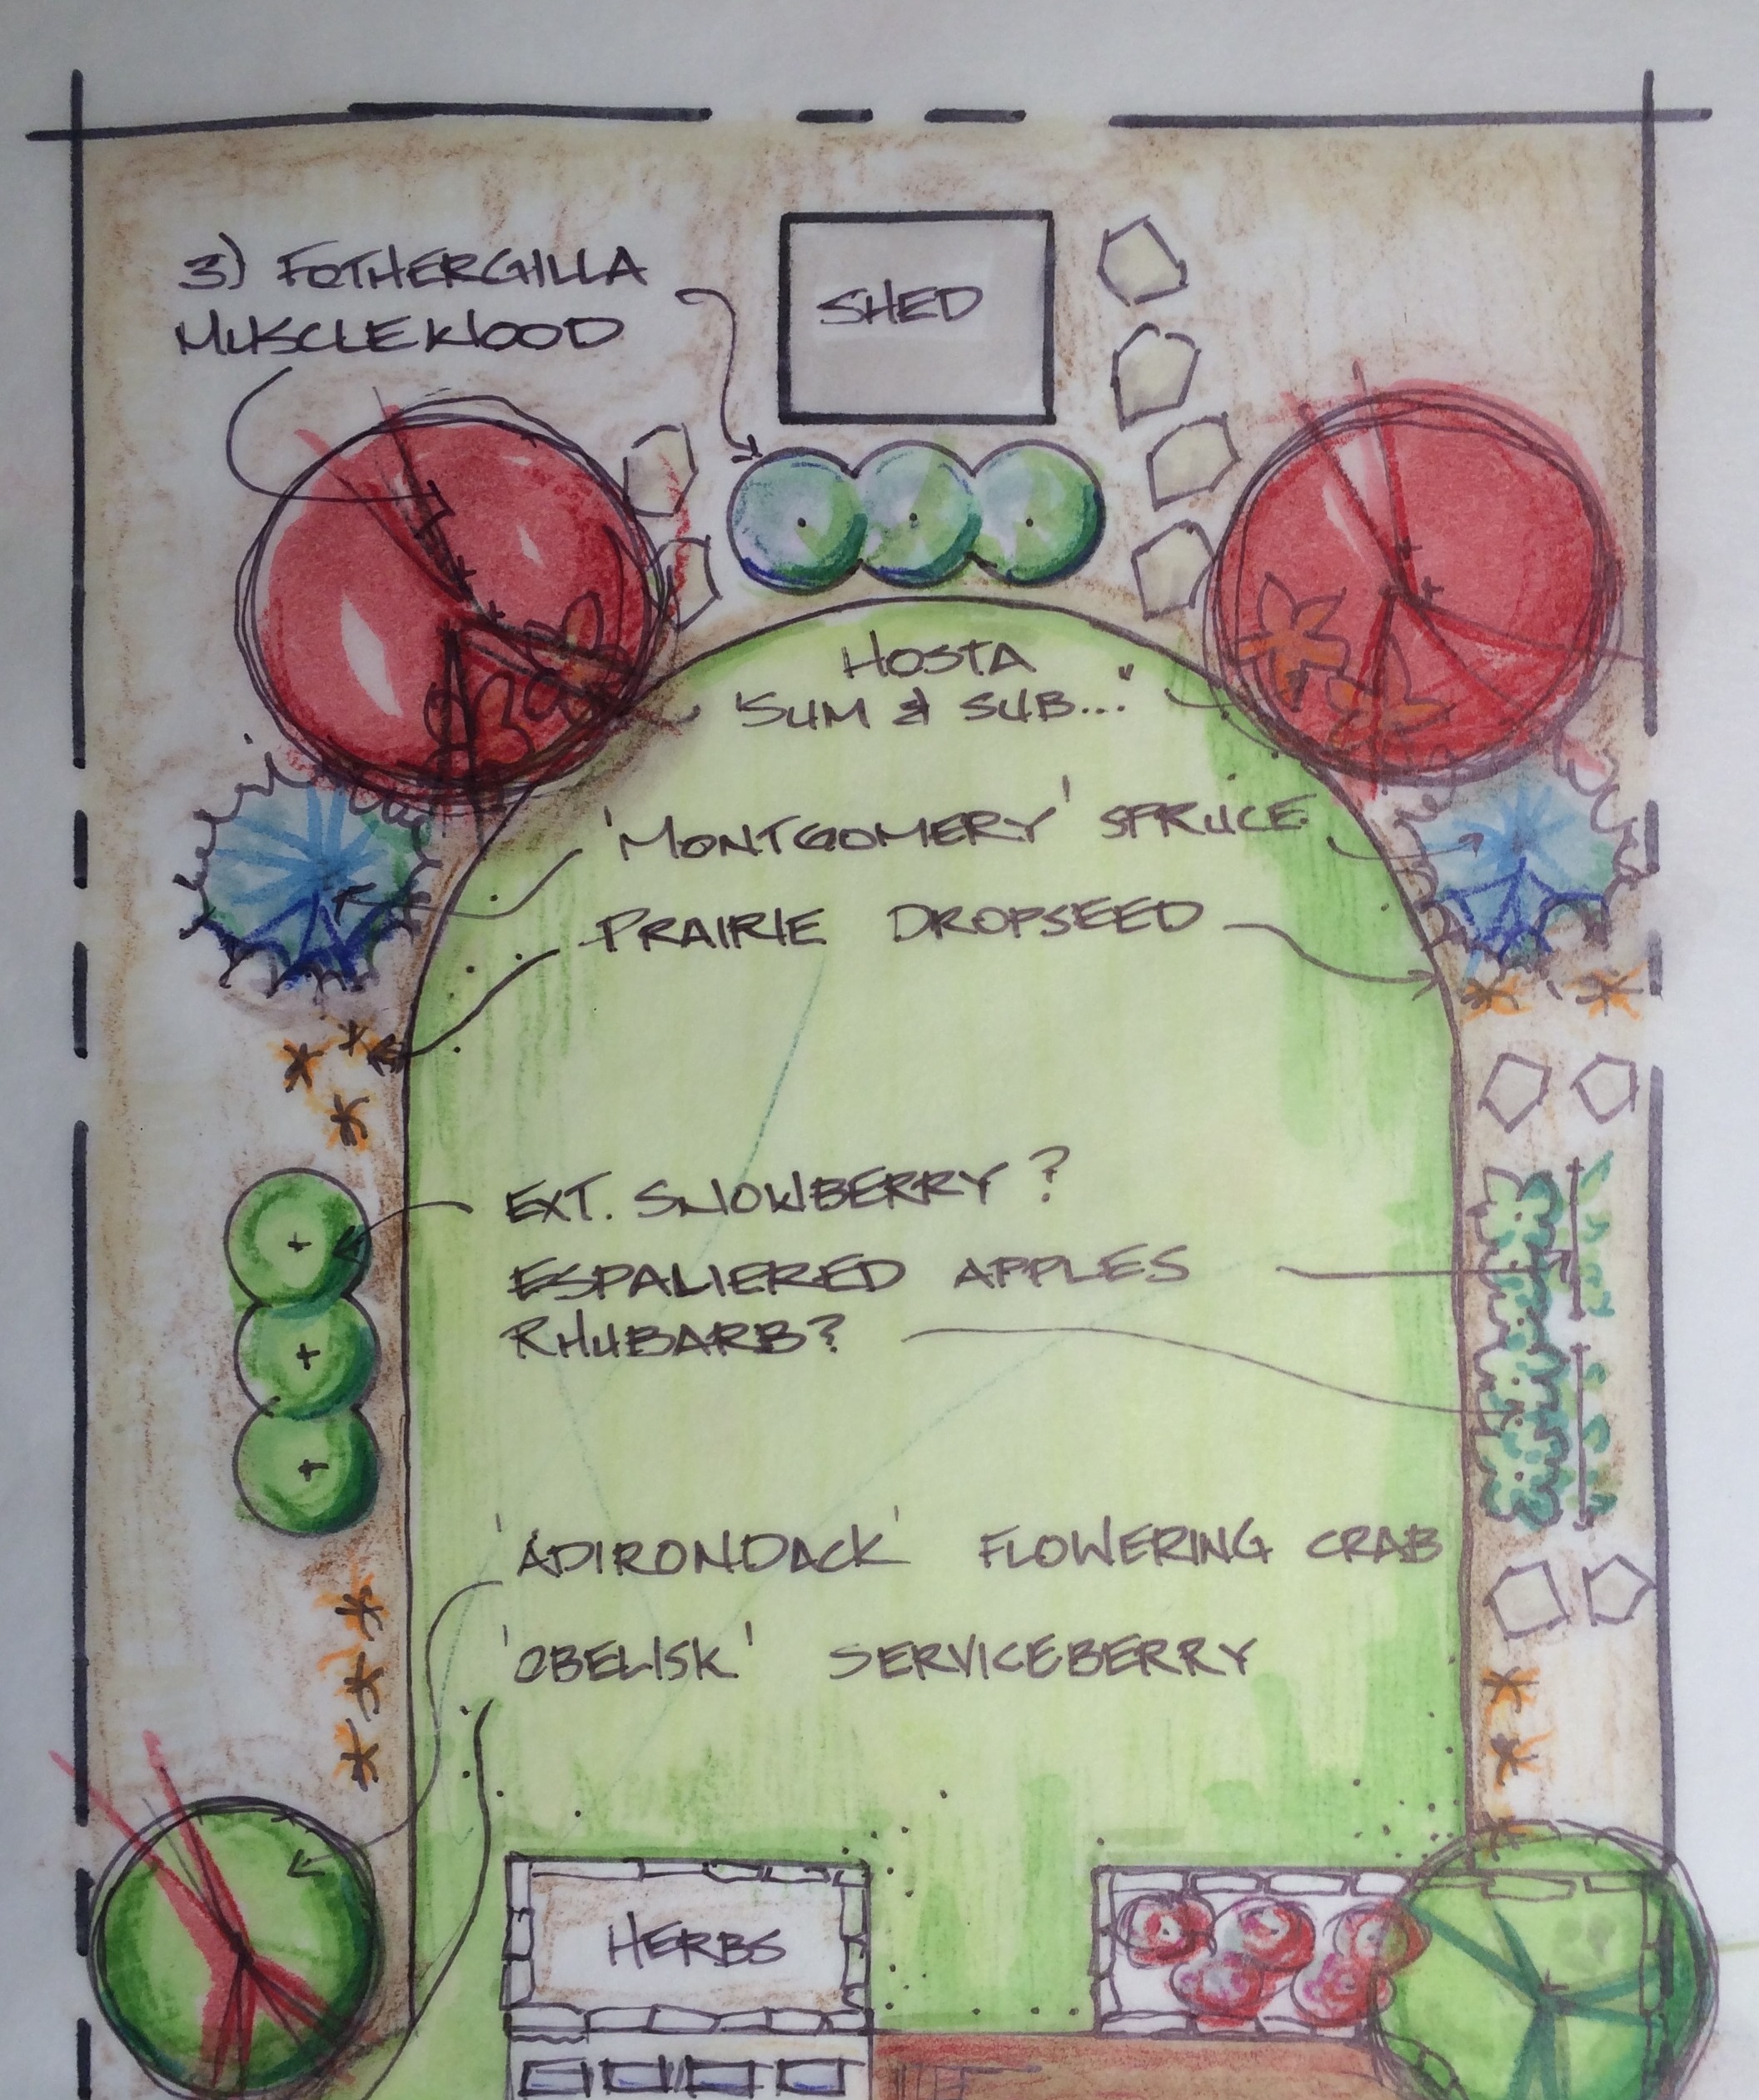 3) FOTHERGILLA
MUSCLEWOOD
SHED
HOSTA
'SUM & SUB..."
'MONTGOMERY' SPRUCE
PRAIRIE DROPSEED
EXT. SNOWBERRY?
ESPALIERED APPLES
RHUBARB?
'ADIRONDACK' FLOWERING CRAB
'OBELISK' SERVICEBERRY
HERBS